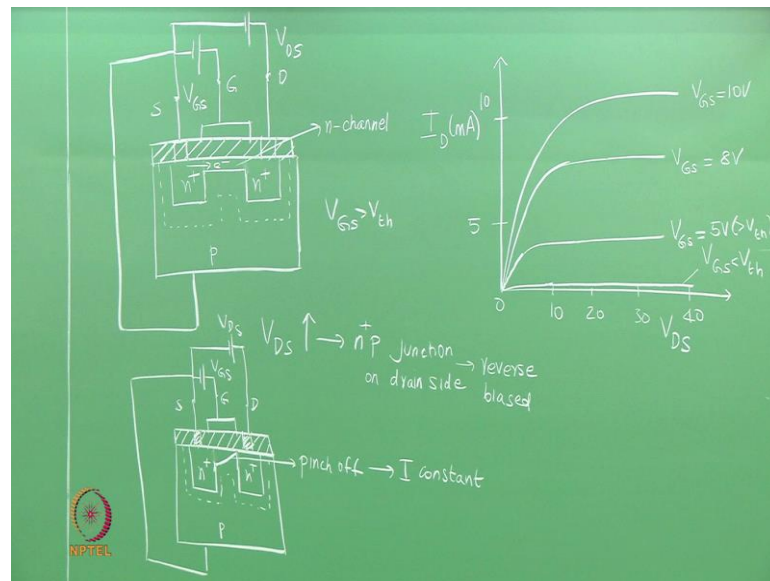 V_DS
S
V_GS
G
D
n-channel
e⁻
n⁺
n⁺
P
V_GS>V_th
I_D(mA)
10
5
0
10
20
30
40
V_DS
V_GS=10V
V_GS=8V
V_GS=5V(>V_th)
V_GS<V_th
V_DS ↑ → n⁺p junction → reverse
on drain side biased
V_DS
V_GS
S
G
D
n⁺
n⁺
P
pinch off → I constant
NPTEL